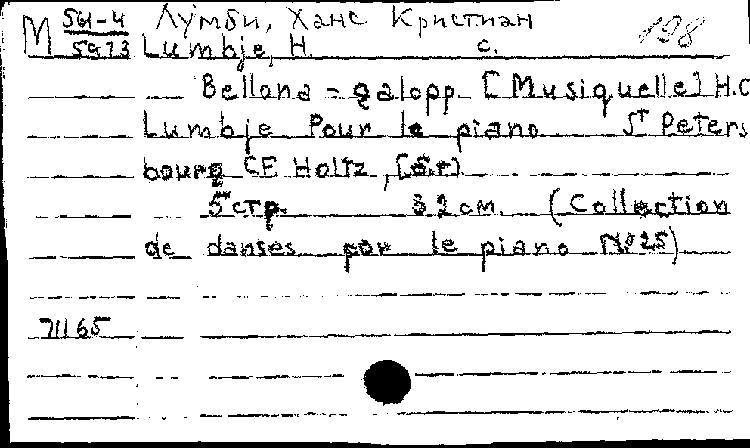 М 561-4 Лумби, Ханс Кристиан 198
5973 Lumbje, H. c.
Bellona - galopp [Musiquelle] H.C
Lumbje Pour le piano St Peters
bourg CE Holtz, [S.r]
5 стр. 32 см. (Collection
de danses por le piano №25)
71165